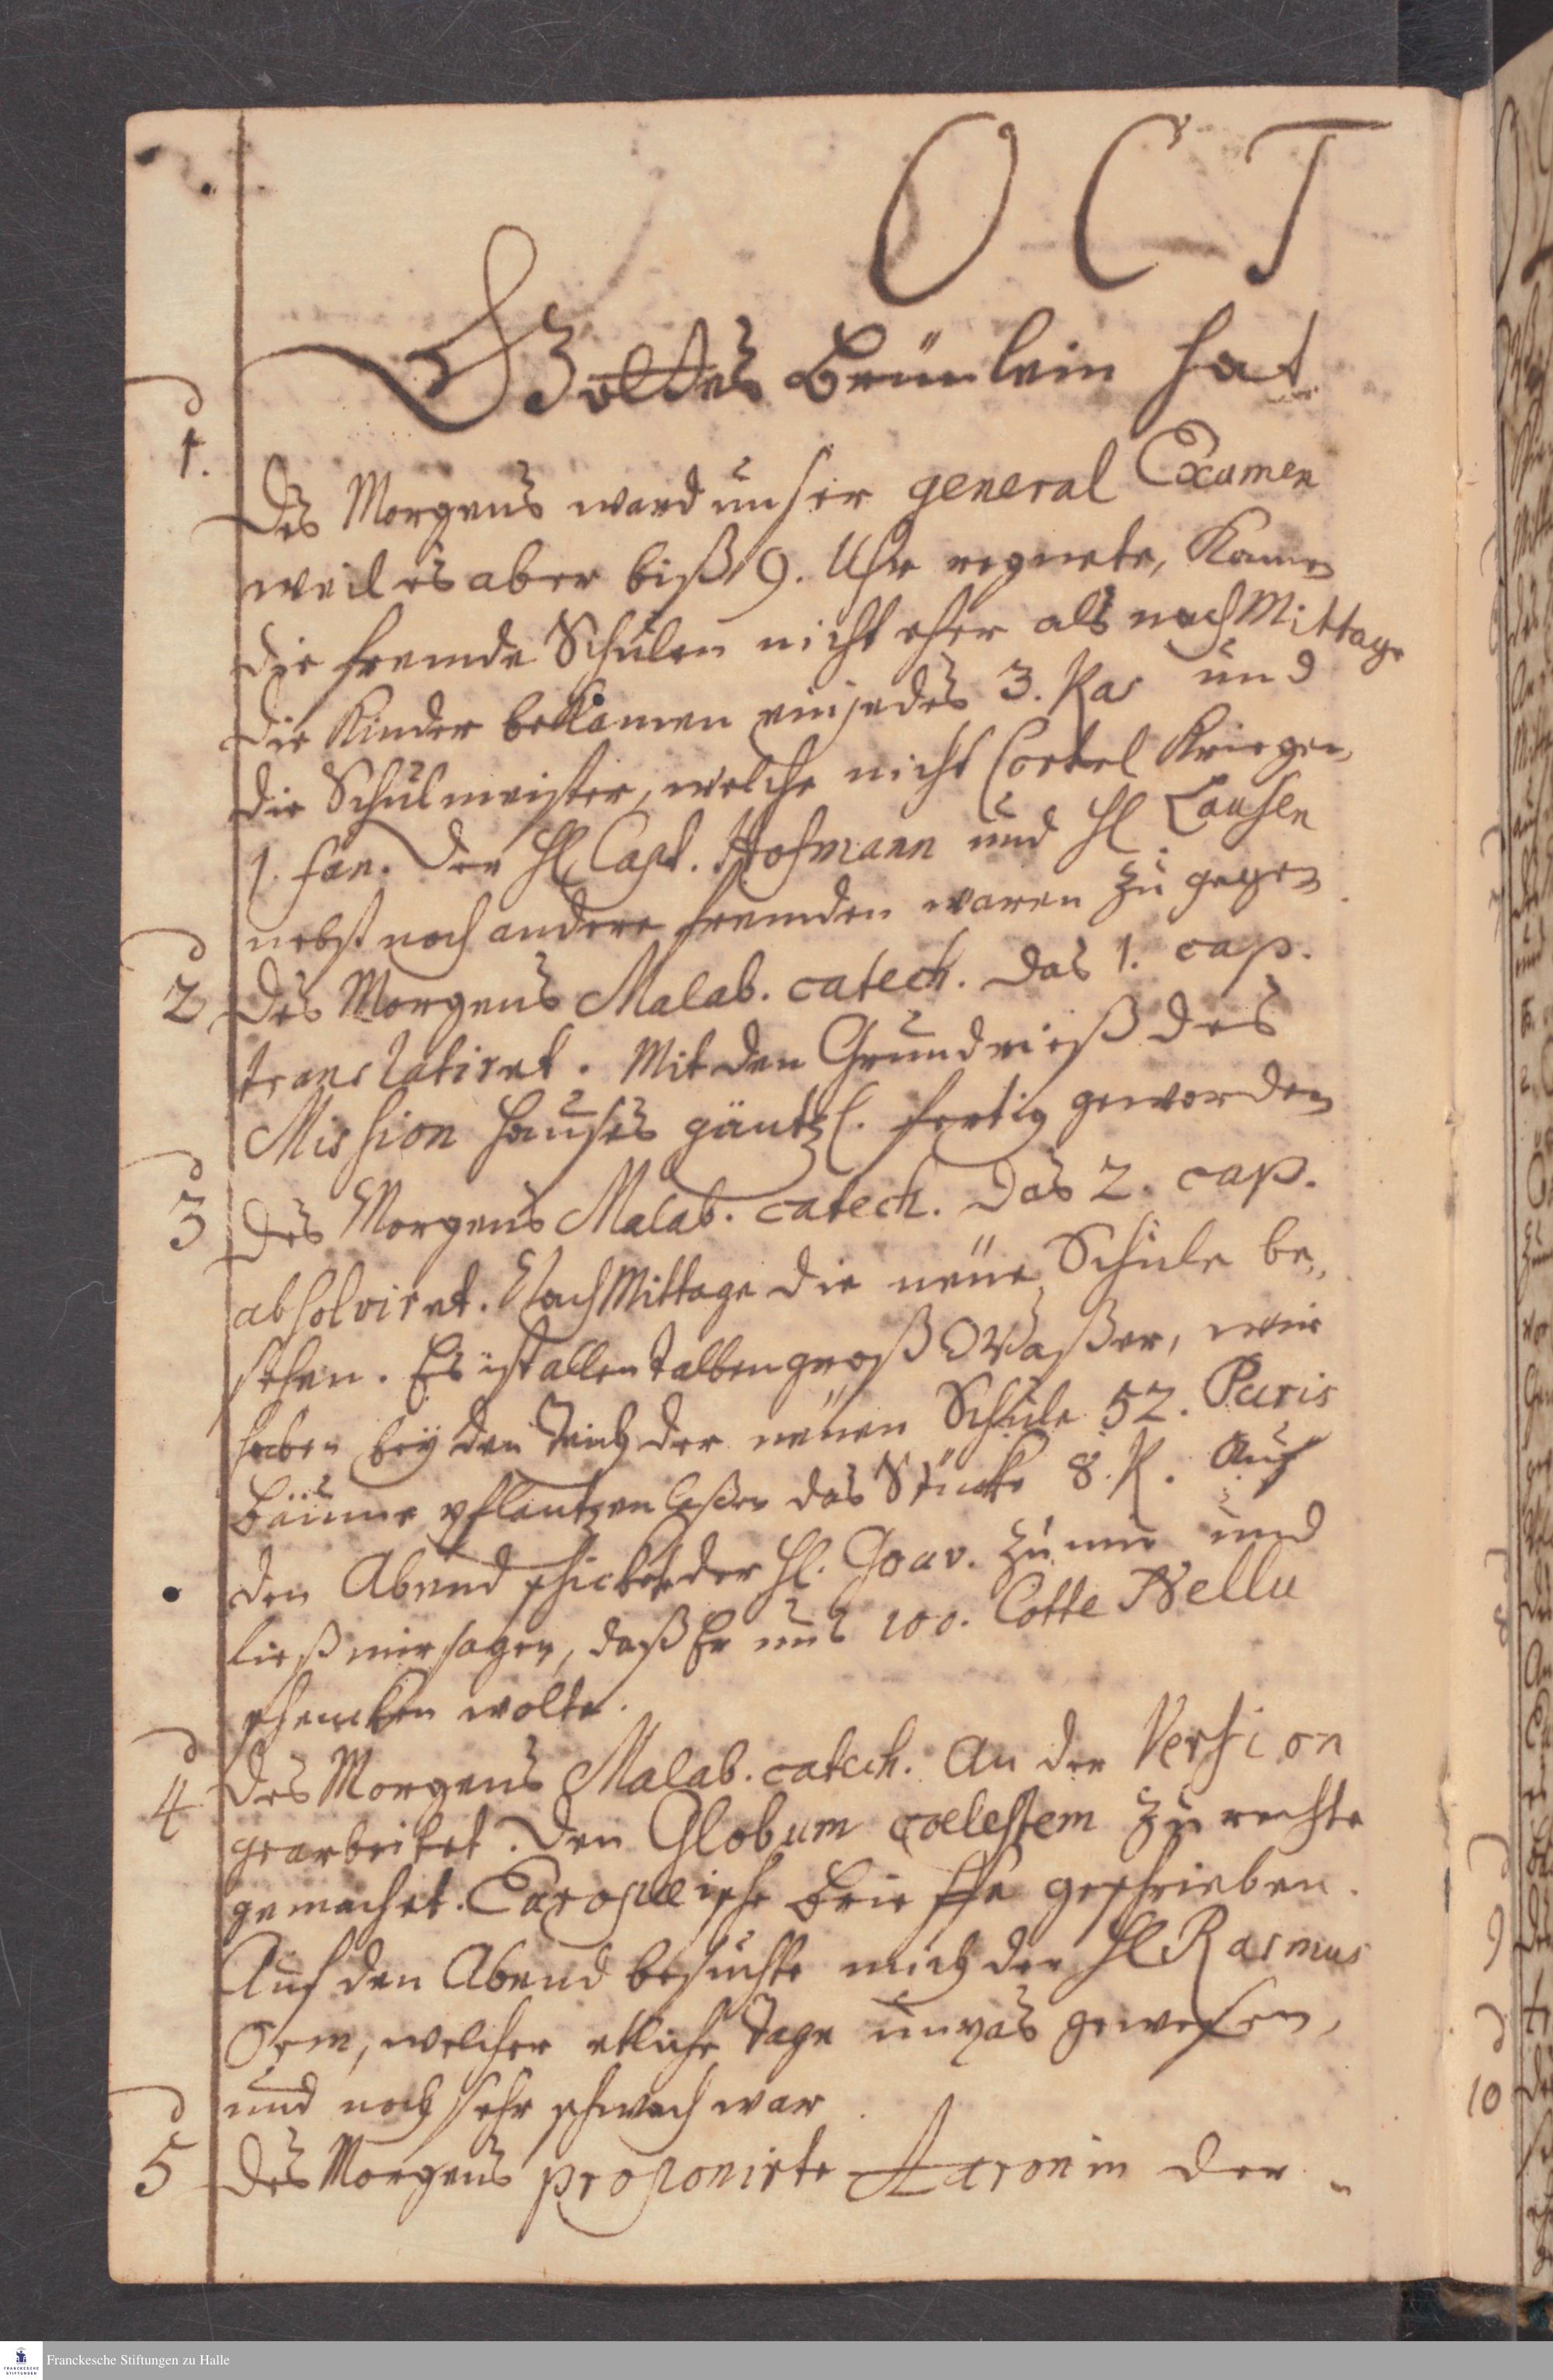 O C T
Gottes Brünlein hat
d
1.
Des Morgens ward unser general Examen
weil es aber biß 9. Uhr regnete, Kamen
die fremde Schulen nicht eher als nach Mittage
Die Kinder bekamen ein jedes 3. Kas und
die Schulmeister, welche nicht Cortel Kriegen,
1. fan. Der Hl Capt. Hofmann und Hl Clausen
nebst noch andere fremden waren zu gegen.
d
2
Des Morgens Malab. catech. das 1. cap.
translatiret. Mit den Grundrieß des
Mission Hauses gäntzl. fertig geworden
d
3
Des Morgens Malab. catech. das 2. cap.
absolviret. Nach Mittage die neüe Schule be„
sehen. Es ist allenthalben groß Waßer, wir
haben bey den Teich der neuen Schule 52. Puris
Bäume pflantzen laßen das Stücke 8. K. Auf
den Abend schickte der Hl. Gouv. zu mir und
ließ mir sagen, daß Er uns 100. Cotte Nellu
schencken wolte.
d
4
Des Morgens Malab. catech. An der Version
gearbeitet. Den Globum coelestem zu rechte
gemachet. Europæische Brieffe geschrieben.
Auf den Abend besuchte mich der Hl Rasmus
Orm, welcher etliche Tage unpas gewesen,
und noch sehr schwach war
d
5
Des Morgens proponirte Aaron in der
d
9
d
10
Franckesche Stiftungen zu Halle
FRANCKESCHE
STIFTUNGEN